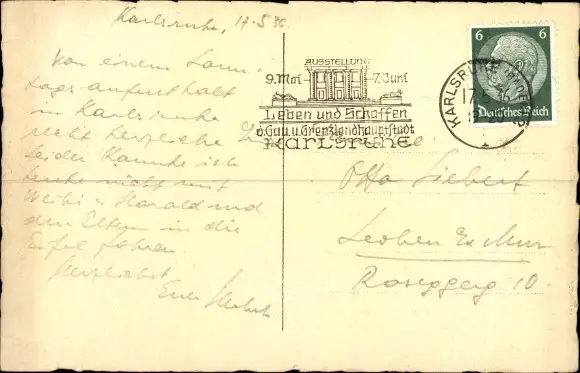 Karlsruhe, 17.5.36
Von einem Sonn-
tagsaufenthalt
in Karlsruhe
recht herzliche
Leider konnte ich
heute nicht mit
u. Harald und
den Eltern in die
Eifel fahren.
Herzlichst
Euer
AUSSTELLUNG
9. Mai - 7. Juni
Leben und Schaffen
d. Gau u. Grenzlandhauptstadt
KARLSRUHE
KARLSRUHE
17
6 6
Deutsches Reich
Otto Siebert
Leoben
Rosegggerg 10.